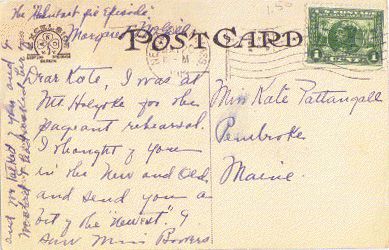 The "Reluctant fire Episode"
Margaret
POST CARD
Dear Kate, I was at
Mt Holyoke for the
pageant rehearsal.
I thought of you
in the New and Old
and send you a
bit of the "newest". I
saw Miss Bowers
and we talked of you and I
Miss Kate Pattangall
Pembroke
Maine.
1